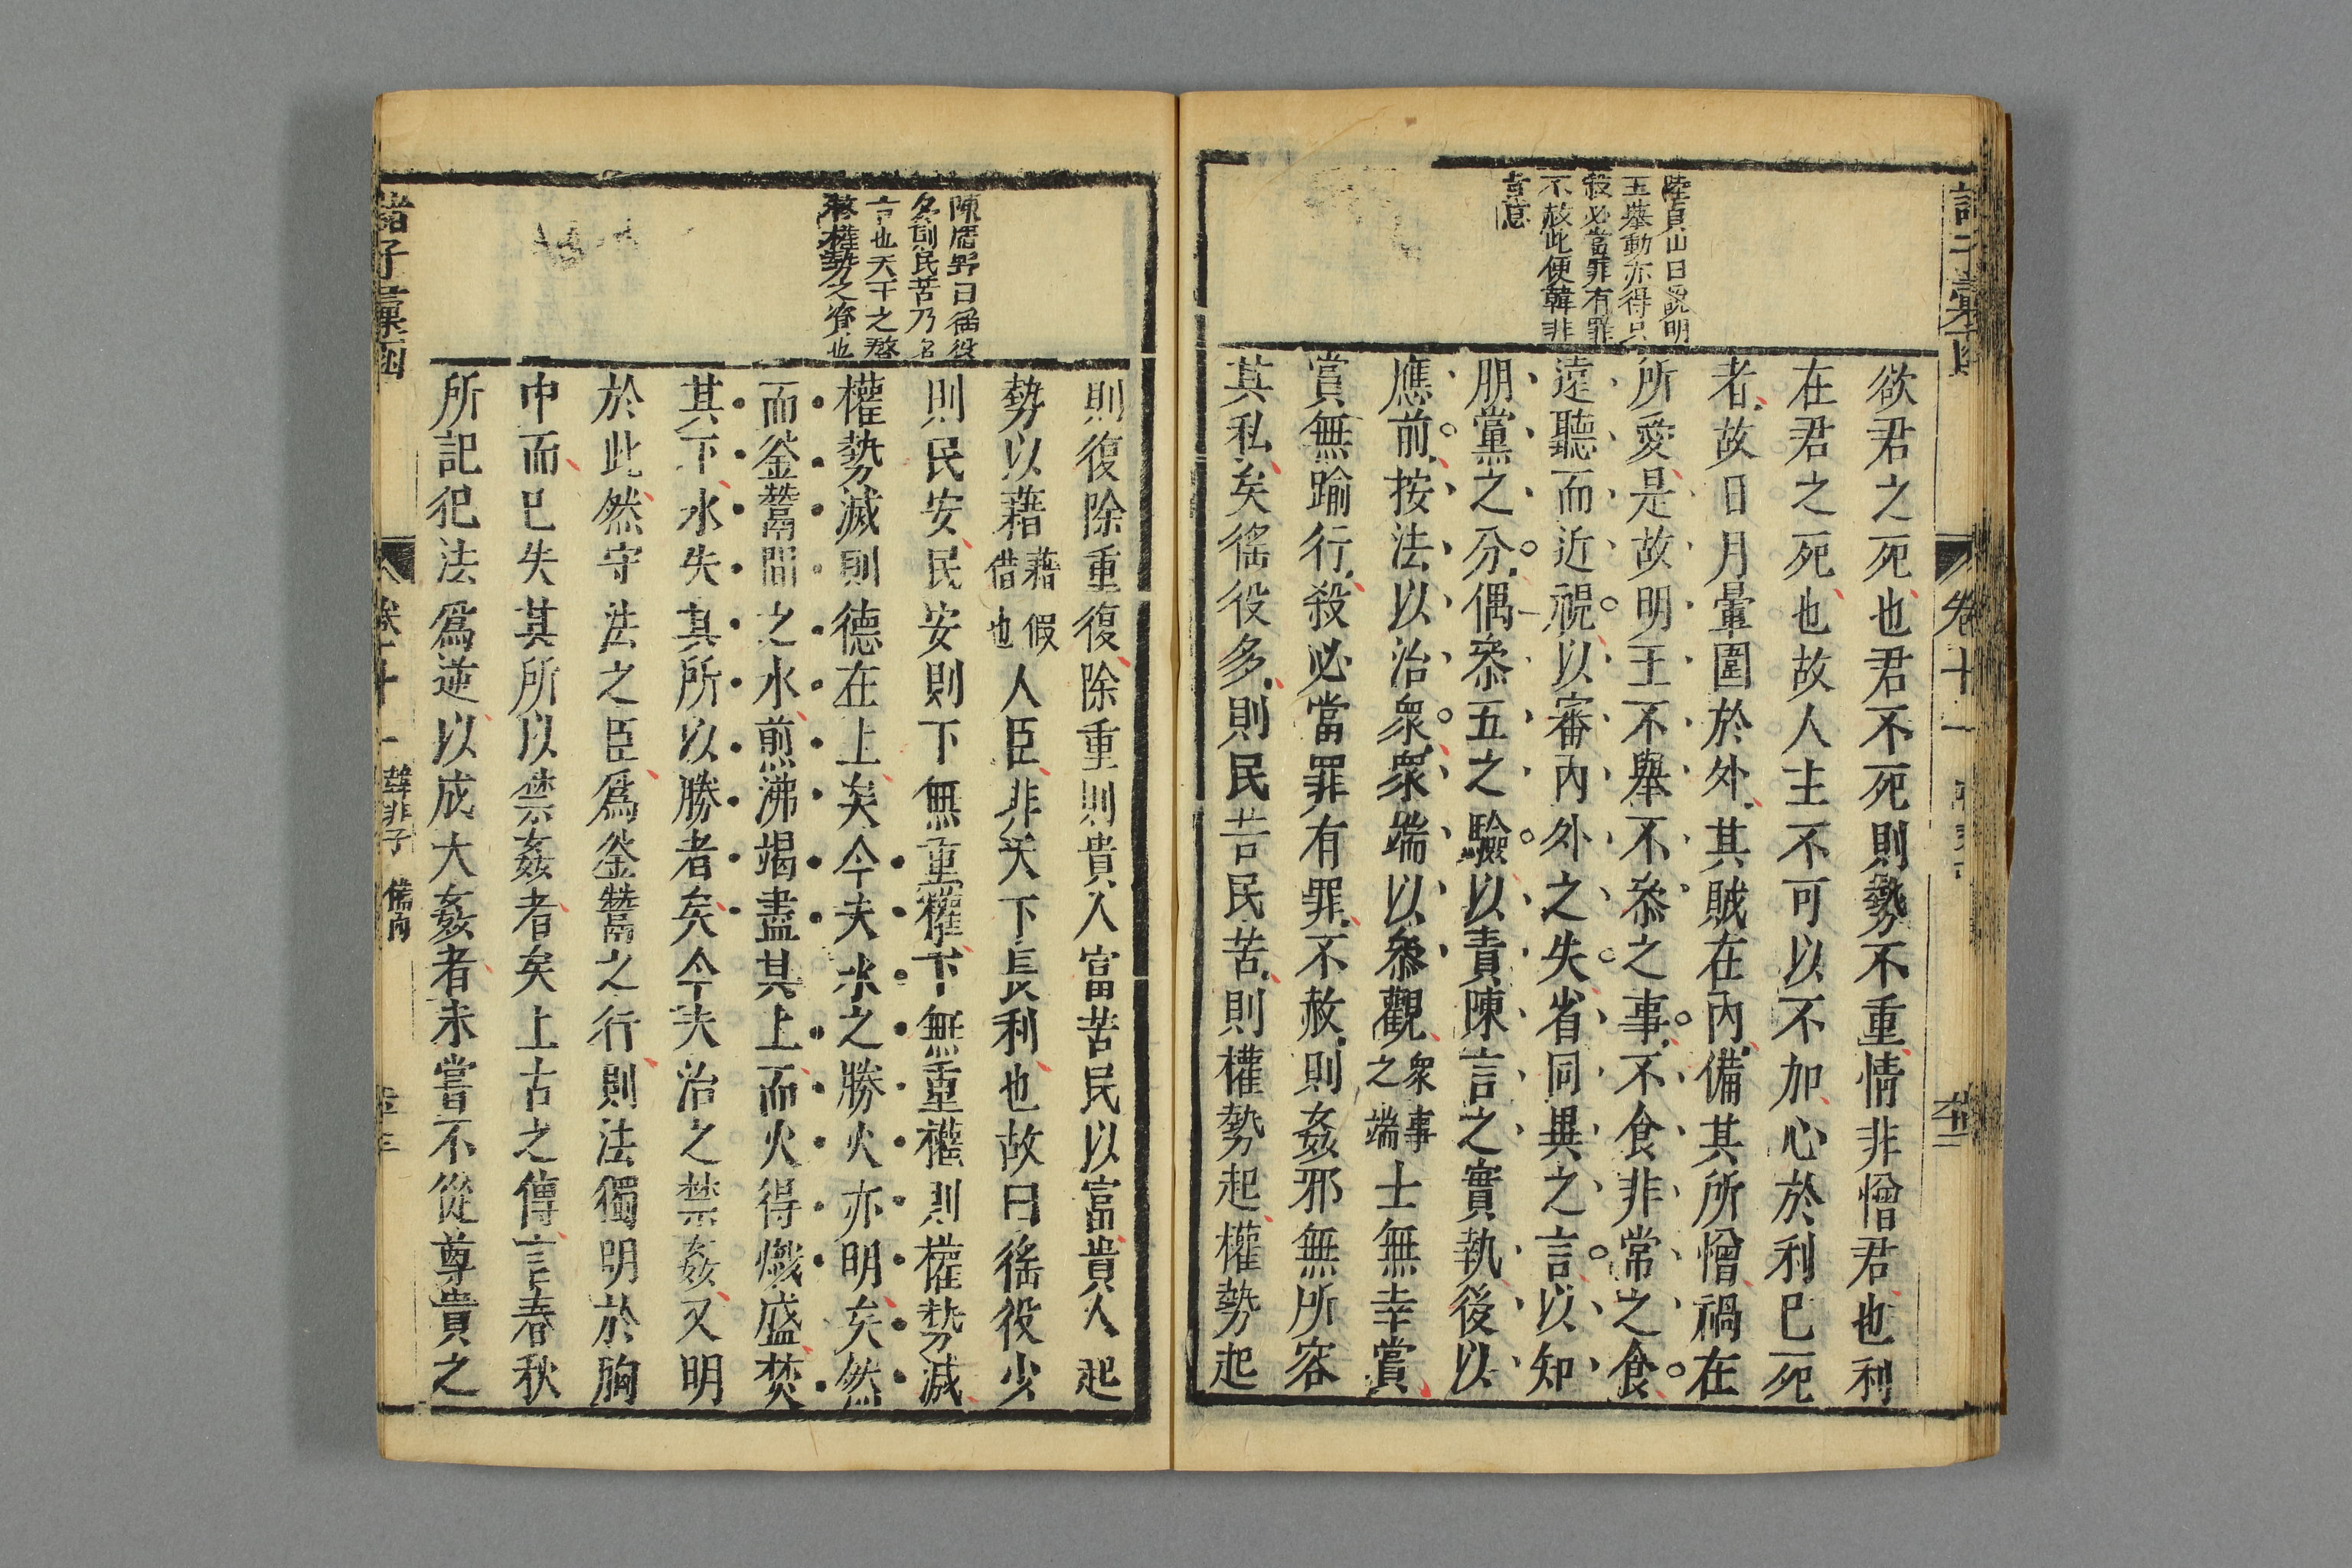 陸貞山曰說明
王舉動亦得只
殺必當罪有罪
不赦此便韓非
言意
欲君之死也君不死則勢不重情非憎君也利
在君之死也故人主不可以不加心於利已死
者故日月暈圍於外其賊在內備其所憎禍在
所愛是故明王不舉不叅之事不食非常之食
遠聽而近視以審內外之失省同異之言以知
朋黨之分偶叅五之驗以責陳言之實執後以
應前按法以治衆衆端以叅觀衆事之端士無幸賞
賞無踰行殺必當罪有罪不赦則姦邪無所容
其私矣徭役多則民苦民苦則權勢起權勢起
陳居野曰徭役
多則民苦乃名
言也天下之
權勢之資也
則復除重復除重則貴人富苦民以富貴人起
勢以藉藉假借也人臣非天下長利也故曰徭役少
則民安民安則下無重權下無重權則權勢滅
權勢滅則德在上矣今夫水之勝火亦明矣然
而釜鬵間之水煎沸竭盡其上而火得熾盛焚
其下水失其所以勝者矣今夫治之禁姦又明
於此然守法之臣爲釜鬵之行則法獨明於胸
中而已失其所以禁姦者矣上古之傳言春秋
所記犯法爲逆以成大姦者未嘗不從尊貴之
諸子彙函
卷十一
韓非子
備內